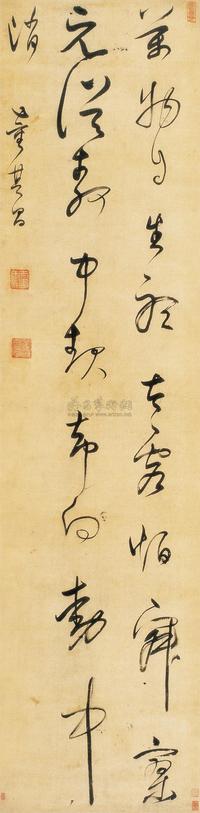 萬物自生聽太虛恒寂寥
還從靜中起却向靜中
消 董其昌